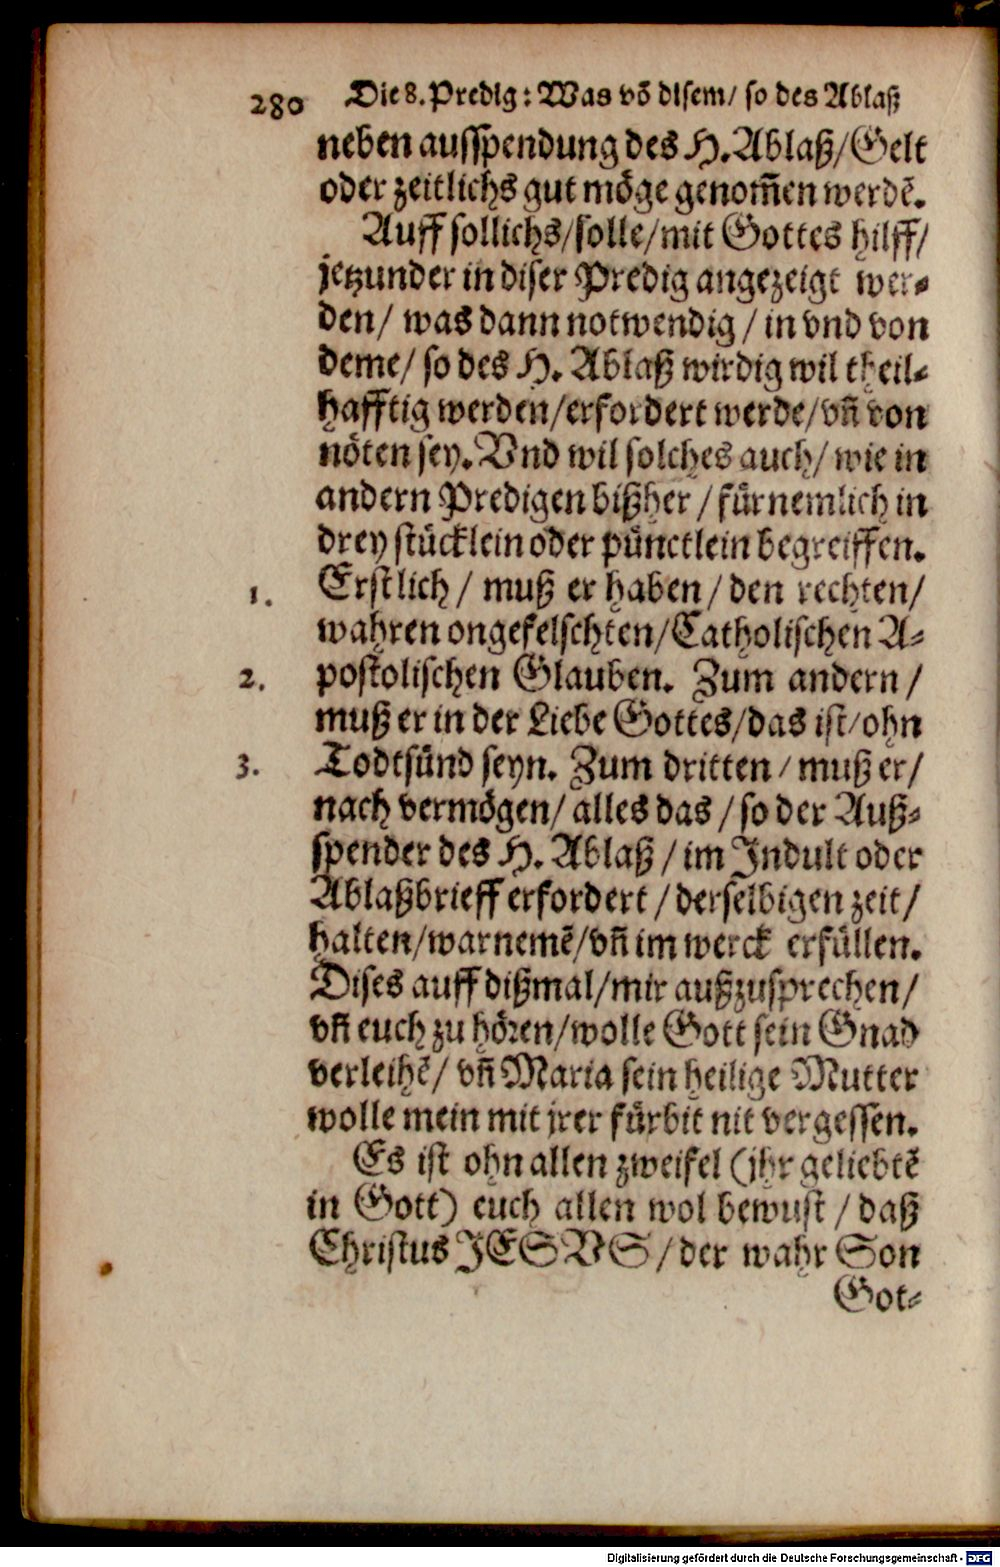 280 Die 8. Predig: Was võ disem/ so des Ablaß
neben ausspendung des H. Ablaß/ Gelt
oder zeitlichs gut möge genom̃en werdẽ.
Auff sollichs/ solle/ mit Gottes hilff/
jetzunder in diser Predig angezeigt wer-
den/ was dann notwendig/ in vnd von
deme/ so des H. Ablaß wirdig wil theil-
hafftig werden/ erfordert werde/ vñ von
nöten sey. Vnd wil solches auch/ wie in
andern Predigen bißher/ fürnemlich in
drey stücklein oder pünctlein begreiffen.
1. Erstlich/ muß er haben/ den rechten/
wahren ongefelschten/ Catholischen A-
2. postolischen Glauben. Zum andern/
muß er in der Liebe Gottes/ das ist/ ohn
3. Todtsünd seyn. Zum dritten/ muß er/
nach vermögen/ alles das/ so der Auß-
spender des H. Ablaß/ im Indult oder
Ablaßbrieff erfordert/ derselbigen zeit/
halten/ warnemẽ/ vñ im werck erfüllen.
Dises auff dißmal/ mir außzusprechen/
vñ euch zu hören/ wolle Gott sein Gnad
verleihẽ/ vñ Maria sein heilige Mutter
wolle mein mit jrer fürbit nit vergessen.
Es ist ohn allen zweifel (jhr geliebtẽ
in Gott) euch allen wol bewust/ daß
Christus JESVS/ der wahr Son
Got-
Digitalisierung gefördert durch die Deutsche Forschungsgemeinschaft - DFG